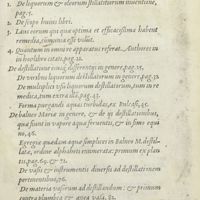 1. De liquorum & oleorum stillatitiorum inuentione,
pag. 1.
2. De scopo huius libri.
3. Laus eorum quæ quia optima et efficacissima habent
remedia, simonia est
4. Quantum in omni re apparatus referat. Authores in
his hoc libro citati. pag. 21.
De destillatione eiusq; differentijs in genere, pag. 25.
De viribus liquorum destillatorum in genere, pag. 33.
De multiplici usu liquorum destillatorum, tum in re
medica, tum extra illam. pag. 43.
Forma purgandi aquas turbidas, ex 45.
De balneo Mariæ in genere, & de ijs destillationibus,
quæ fiunt in vapore aquæ feruentis, & in fimo equi
no. 46.
Egregiæ quædam aquæ simplices in Balneo M. destil
latæ, ordine alphabeti enumeratæ: primum ex plan
tis, pag. 69. & 71.
De vasis & instrumentis diuersis ad destillationem
pertinentibus. 76.
De materia vasorum ad destillandum: & primum
contra plumbea & ærea vasa. 82.